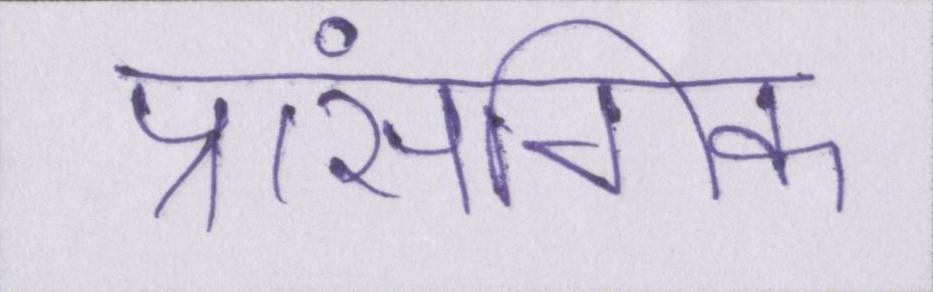 प्रांसगिक